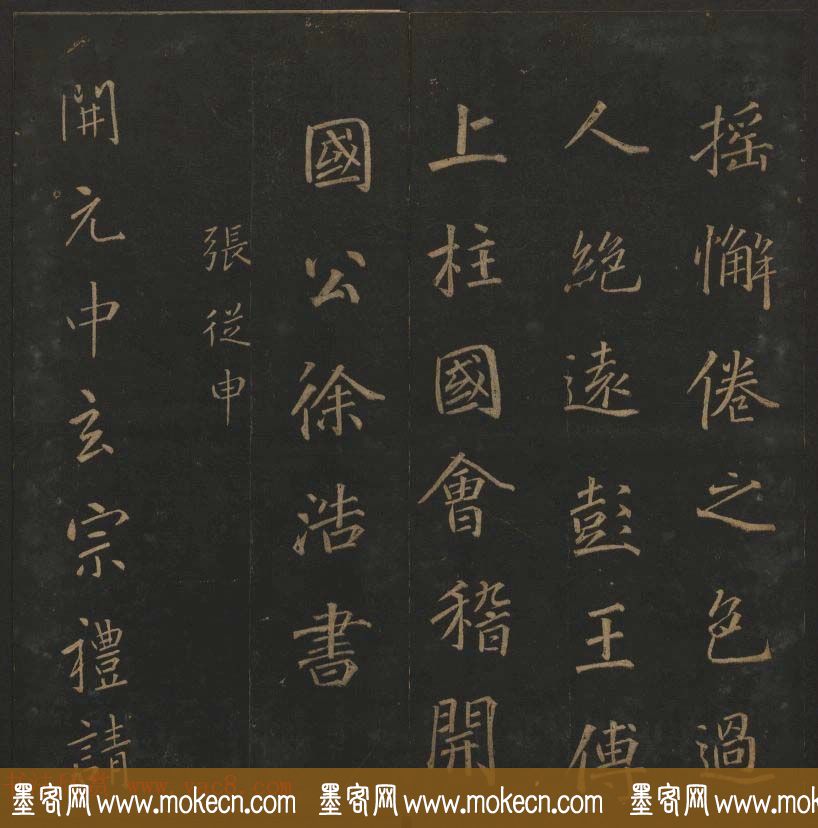 摇懈倦之色過
人絶遠彭王傅
上柱國會稽開
國公徐浩書
張從申
開元中玄宗禮請
墨客网 www.mokecn.com 墨客网 www.mokecn.com 墨客网 www.mokecn.com